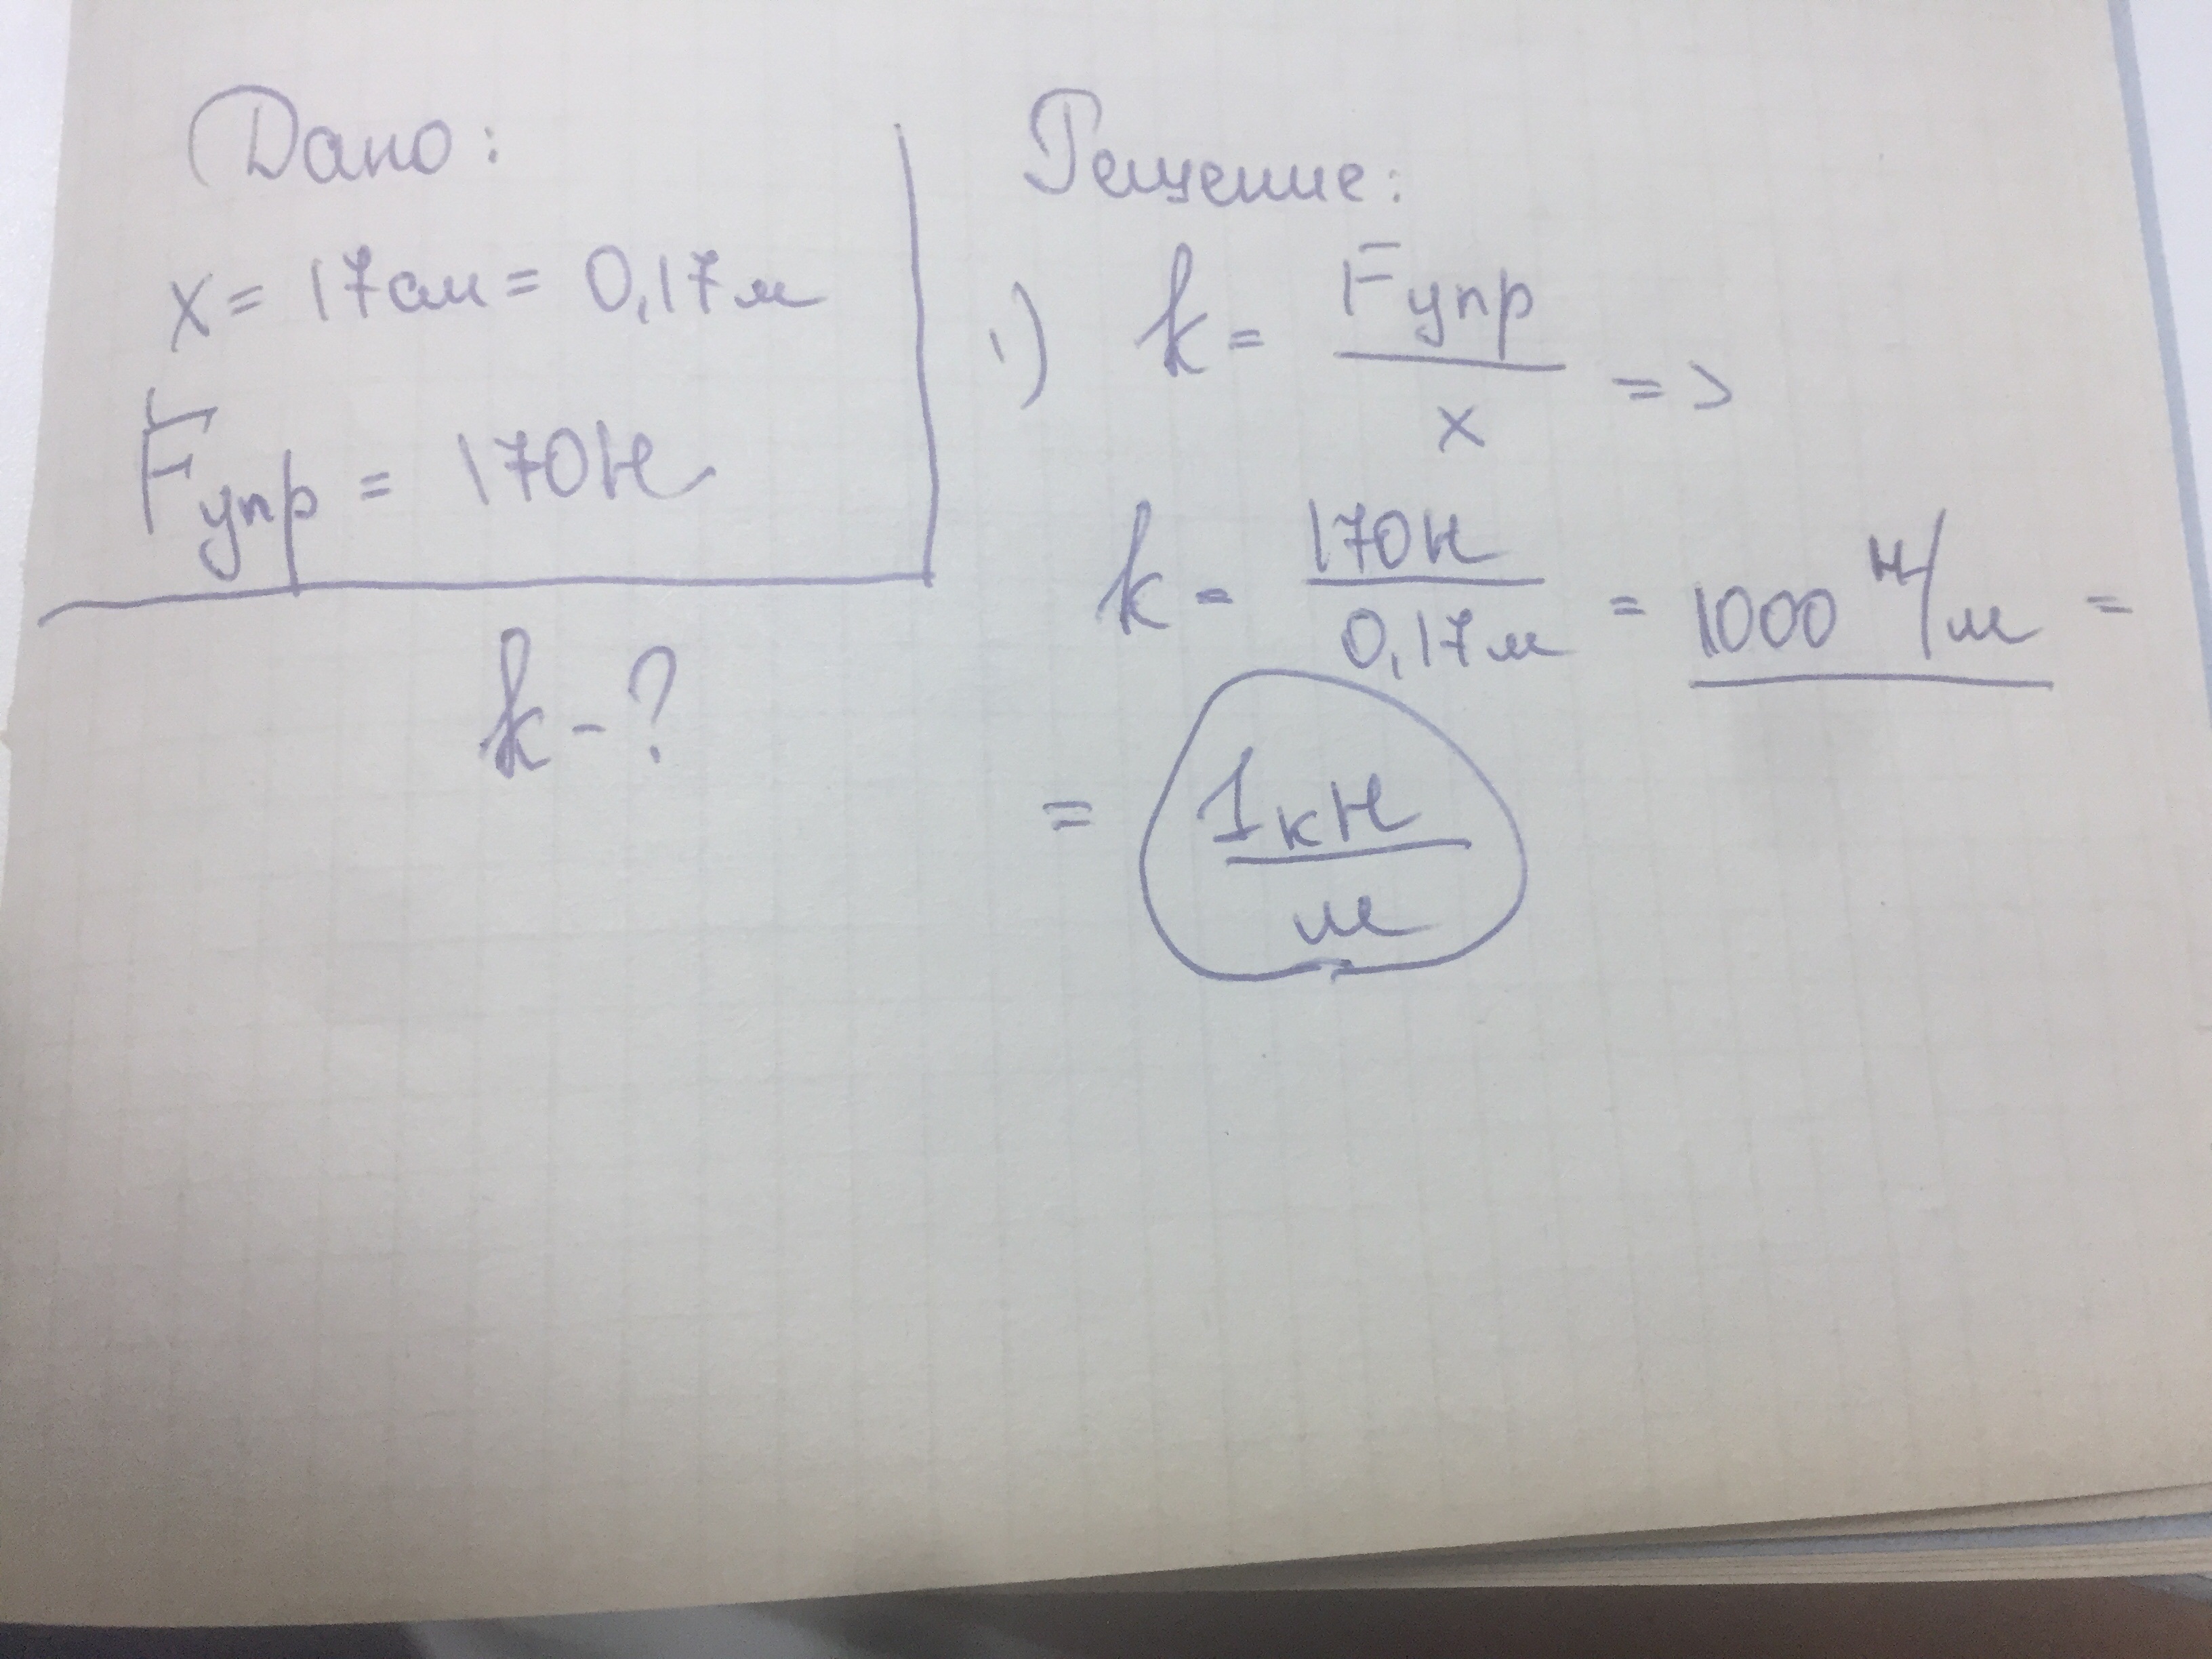 Дано:
x = 17см = 0,17м
Fупр = 170Н
k - ?
Решение:
1) k = Fупр / x =>
k = 170Н / 0,17м = 1000 Н/м =
= 1кН / м